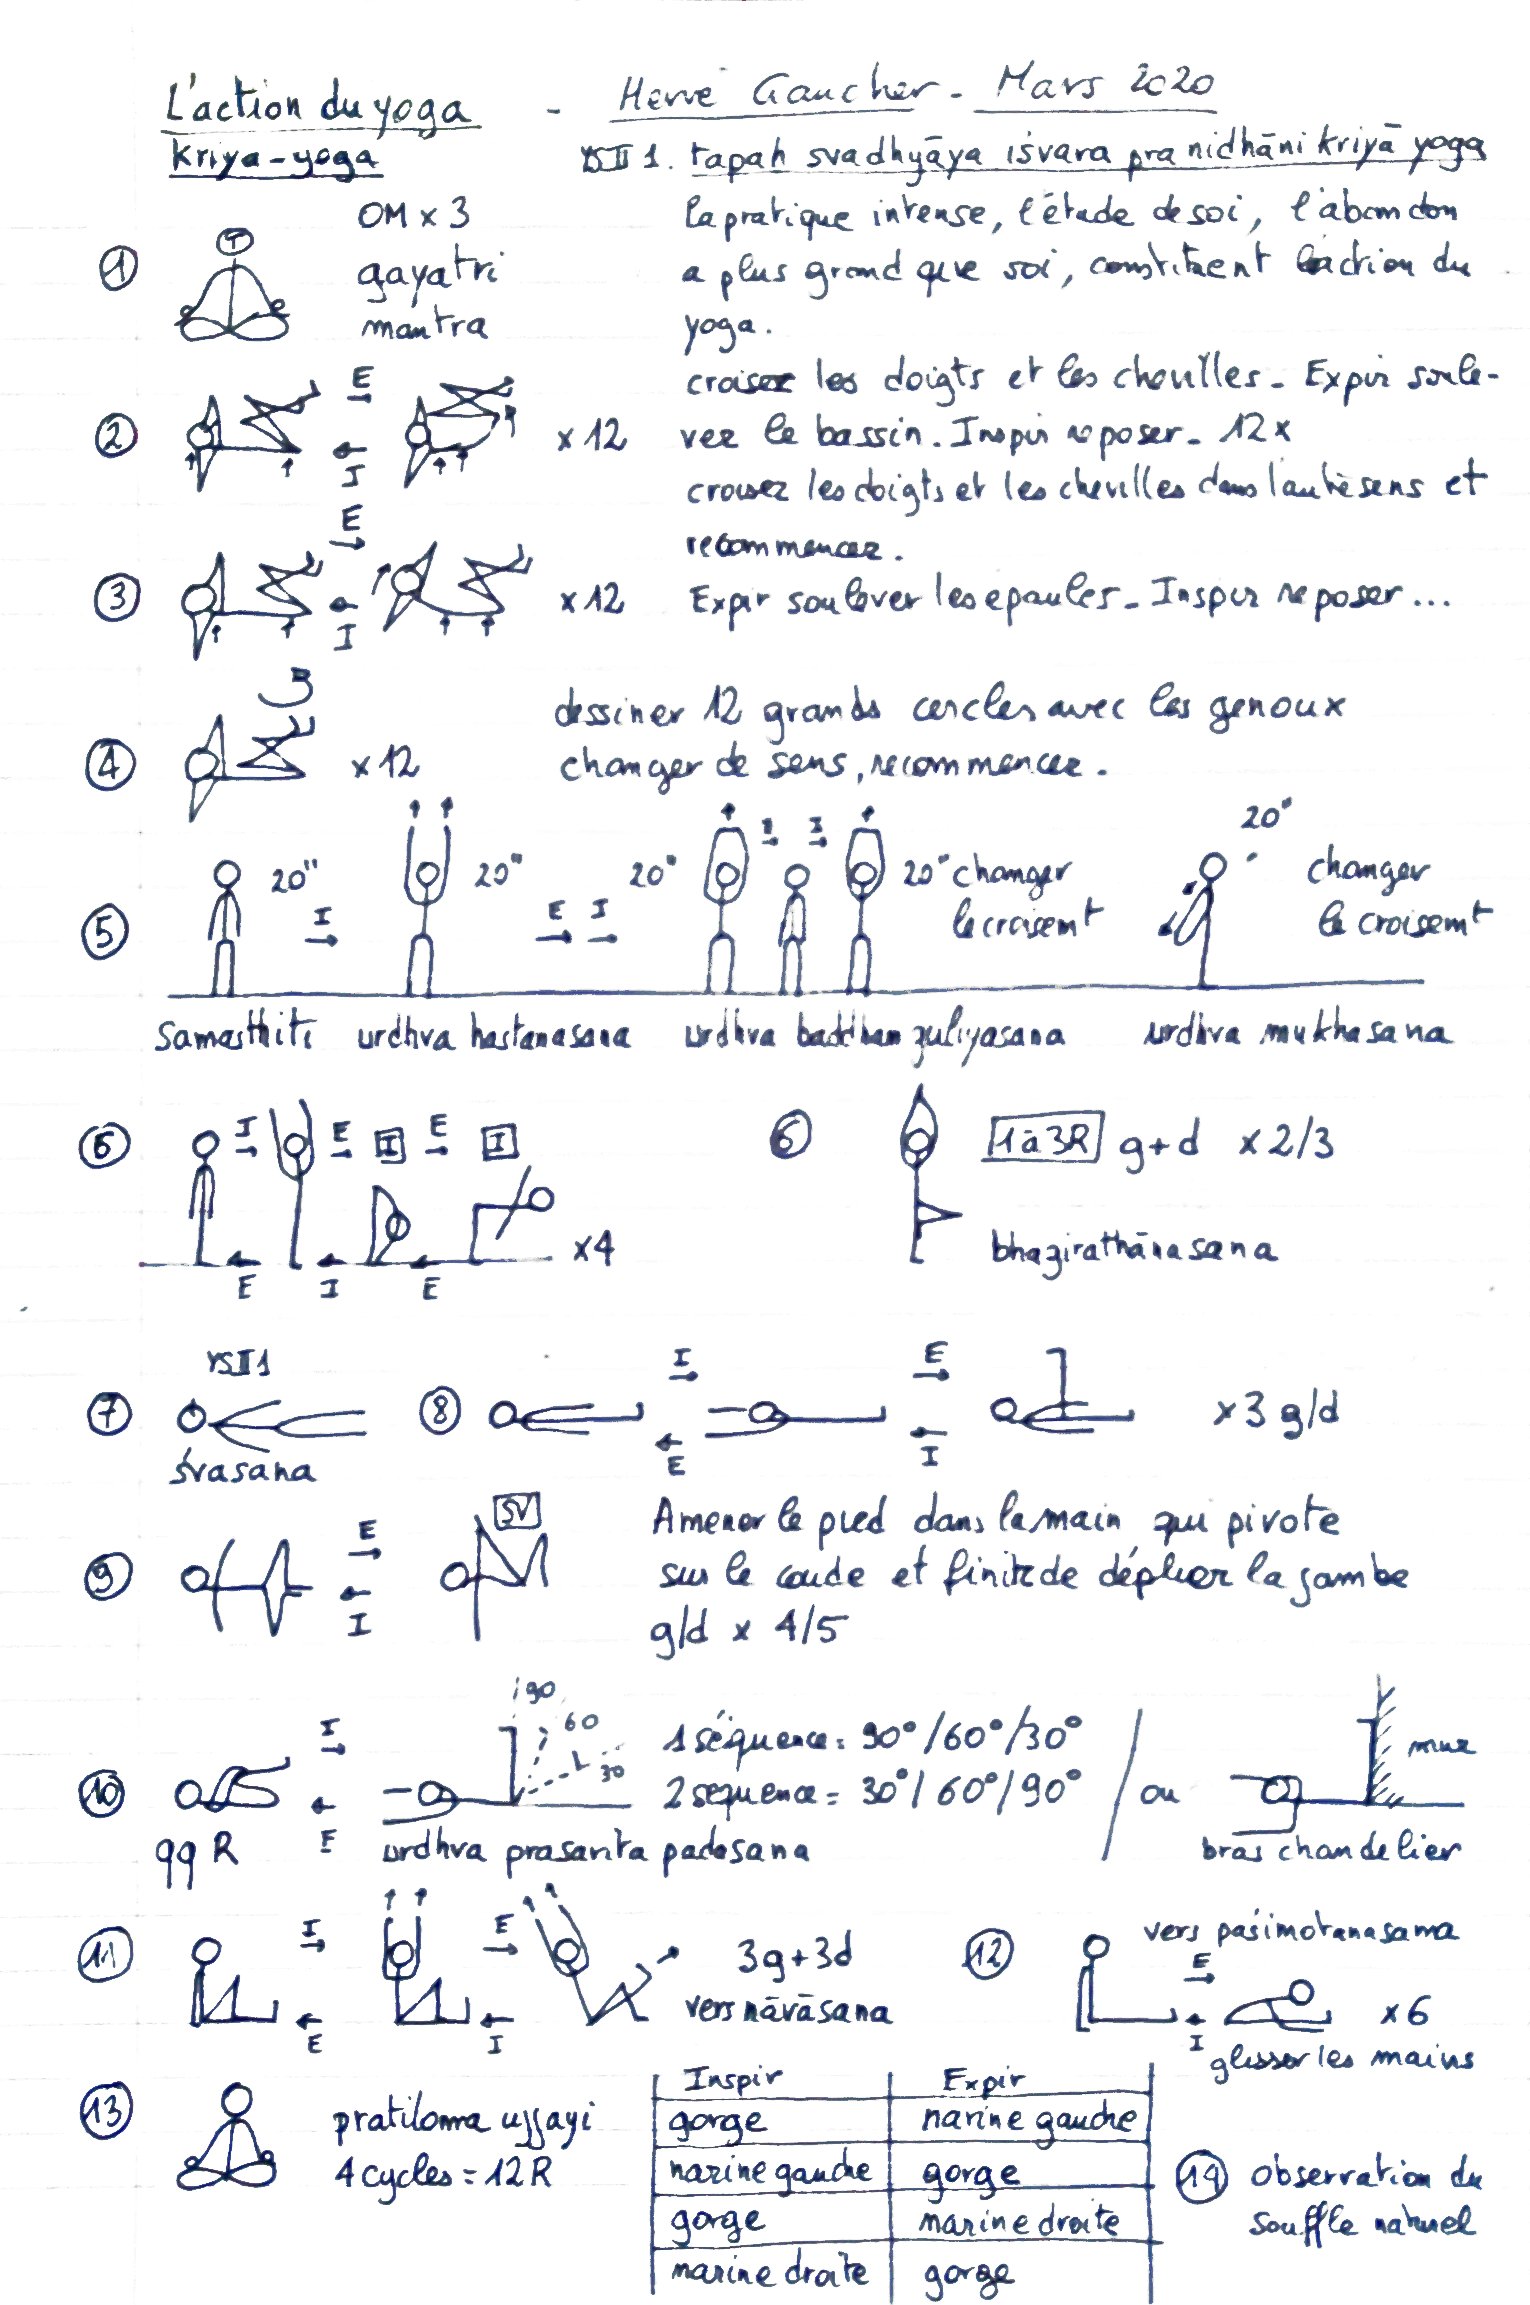 L'action du yoga - Hervé Gaucher - Mars 2020
Kriya-yoga
YSII 1. tapah svadhyāya iśvara pranidhāni kriyā yoga
① OM x 3
gayatri
mantra
la pratique intense, l'étude de soi, l'abandon
a plus grand que soi, constituent l'action du
yoga.
② E I x 12
croisez les doigts et les chevilles - Expir soule-
vez le bassin. Inspir reposer - 12x
croisez les doigts et les chevilles dans l'autre sens et
recommencez.
③ E I x 12 Expir soulever les epaules - Inspir reposer ...
④ x 12 dessiner 12 grands cercles avec les genoux
changer de sens, recommencez.
⑤ 20" I 20" E I 20" E I 20" changer
le croisemt
20" changer
le croisemt
Samasthiti urdhva hastanasana urdhva baddhanguliyasana urdhva mukhasana
⑥ I E I E I
E I E x4
⑥ 1 à 3R g+d x 2/3
bhagirathānasana
⑦ YSII1
śvasana
⑧ I E
E I
x 3 g/d
⑨ E I SV
Amener le pied dans la main qui pivote
sur le coude et finir de déplier la jambe
g/d x 4/5
⑩ I E 90 60 30
99 R urdhva prasarita padasana
1 séquence = 90°/60°/30°
2 sequence = 30°/60°/90°
/ ou mur
bras chandelier
⑪ I E
E I
3g+3d
vers nāvāsana
⑫ vers paśimotanasana
E
I x 6
glisser les mains
⑬ pratiloma ujjayi
4 cycles = 12 R
Inspir Expir
gorge narine gauche
narine gauche gorge
gorge narine droite
narine droite gorge
⑭ Observation du
souffle naturel